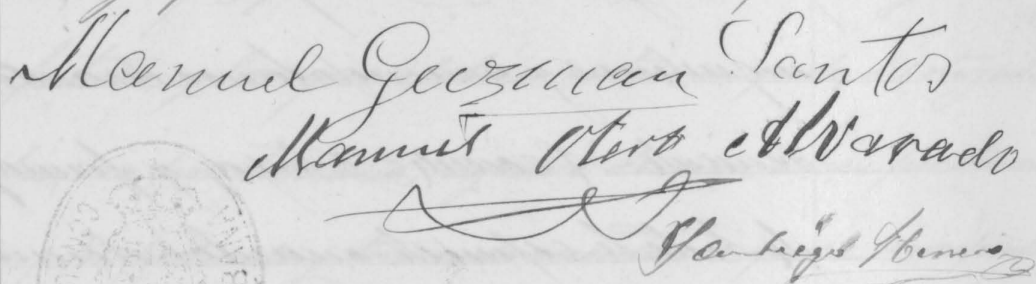 Manuel Guzman Santos
Manuel Otero Alvarado
Santiago Herrero